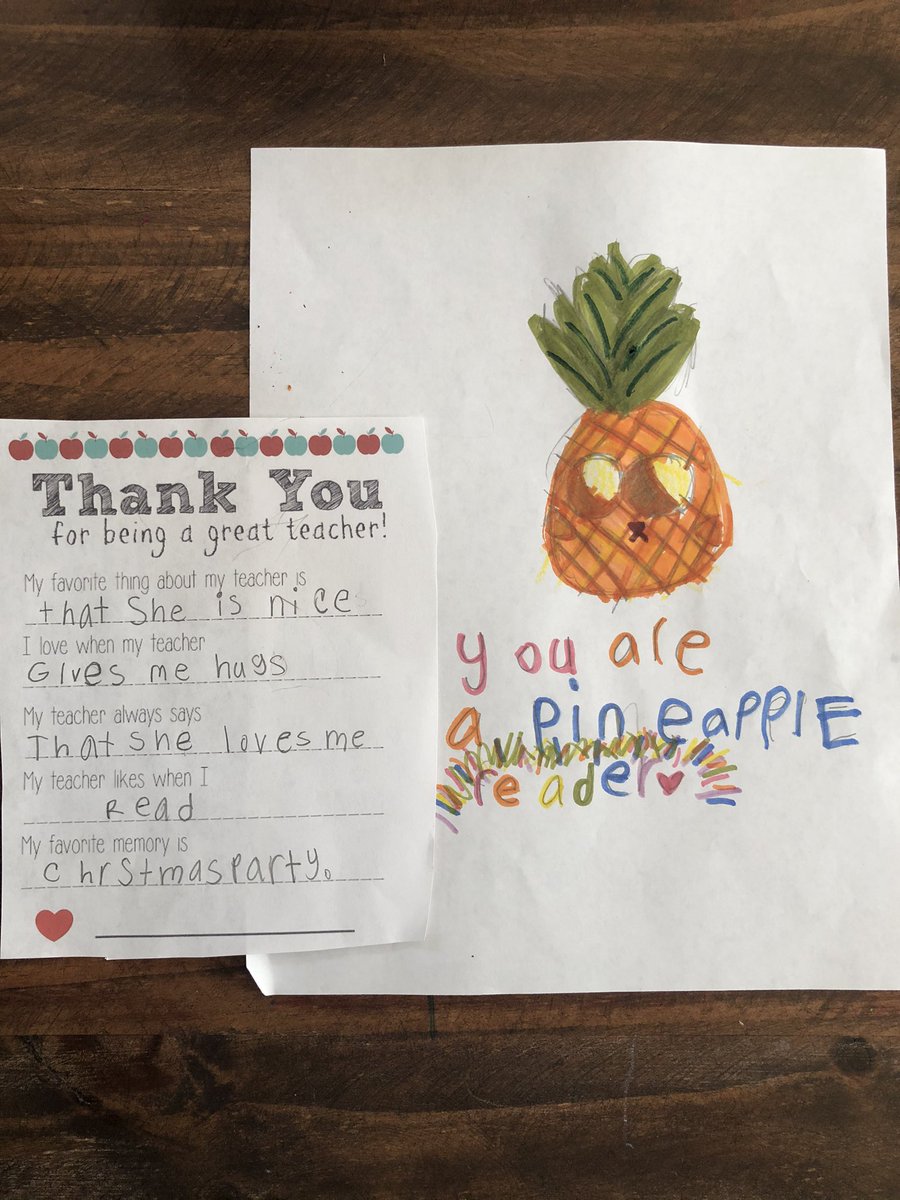 Thank You
for being a great teacher!
My favorite thing about my teacher is
that She is nice
I love when my teacher
Gives me hugs
My teacher always says
That she loves me
My teacher likes when I
Read
My favorite memory is
ChrStmas party.
you are
a pineapplE
reader